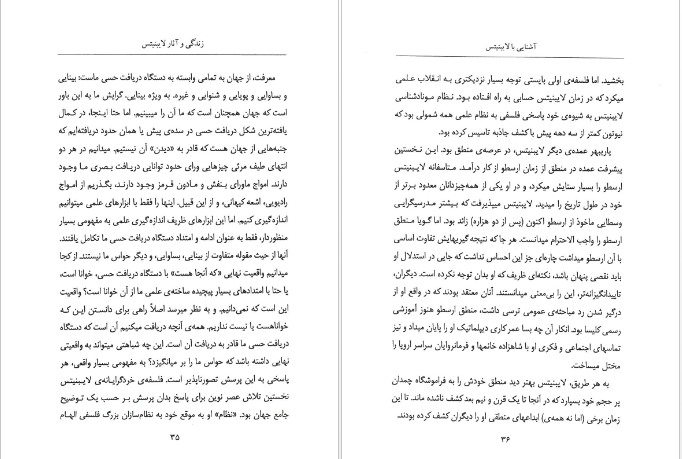 زندگی و آثار لایبنیتس
معرفت، از جهان به تمامی وابسته به دستگاه دریافت حسی ماست: بینایی
و بساوایی و بویایی و شنوایی و غیره، به ویژه بینایی. گرایش ما به این باور
است که جهان همچنان است که ما آن را میبینیم. اما حتا اینجا، در کمال
یافته‌ترین شکل دریافت حسی در سده‌ی پیش یا همان حدود دریافته‌ایم که
جنبه‌هایی از جهان هست که قادر به «دیدن» آن نیستیم. میدانیم در هر دو
انتهای طیف مرئی چیزهایی ورای حدود توانایی دریافت بصری ما وجود
دارند. امواج ماورای بنفش و مادون قرمز وجود دارند، بگذریم از امواج
رادیویی، اشعه کیهانی، و از این قبیل. اینها را فقط با ابزارهای علمی میتوانیم
اندازه‌گیری کنیم. اما این ابزارهای ظریف اندازه‌گیری علمی به مفهومی بسیار
منظوردار، فقط به عنوان ادامه و امتداد دستگاه دریافت حسی ما تکامل یافتند.
آنها از حیث مقوله متفاوت از بینایی، بساوایی، و دیگر حواس ما نیستند. از کجا
میدانیم واقعیت نهایی «که آنجا هست» با دستگاه دریافت حسی ما خوانا است،
یا حتا با امتدادهای بسیار پیچیده ساخته‌ی علمی ما از آن خوانا است؟ واقعیت
این است که نمی‌دانیم. و به نظر میرسد اصلاً راهی برای دانستن این که
خواناهست یا نیست نداریم. همه‌ی آنچه دریافت میکنیم آن است که دستگاه
دریافت حسی ما قادر به دریافت آن است. این چه شباهتی میتواند به واقعیتی
نهایی داشته باشد که حواس ما را بر میانگیزد؟ به مفهومی بسیار واقعی، هر
پاسخی به این پرسش تصورناپذیر است. فلسفه‌ی خردگرایانه‌ی لایبنیتس
نخستین تلاش عصر نوین برای پاسخ بدان پرسش بر حسب یک توضیح
جامع جهان بود. «نظام» او به موقع خود به نظام‌سازان بزرگ فلسفی الهام
۳۵
آشنایی با لایبنیتس
بخشید. اما فلسفه‌ی اولی بایستی توجه بسیار نزدیکتری به انقلاب علمی
میکرد که در زمان لایبنیتس حسابی به راه افتاده بود. نظام مونادشناسی
لایبنیتس به شیوه‌ی خود پاسخی فلسفی به نظام علمی همه شمولی بود که
نیوتون کمتر از سه دهه پیش با کشف جاذبه تاسیس کرده بود.
پاریبهر عمده‌ی دیگر لایبنیتس، در عرصه‌ی منطق بود. این نخستین
پیشرفت عمده در منطق از زمان ارسطو از کار درآمد. متاسفانه لایبنیتس
ارسطو را بسیار ستایش میکرد، و در او یکی از همه‌چیزدانان معدود برتر از
خود در طول تاریخ را میدید. لایبنیتس میپذیرفت که بیشتر مدرسیگرایی
وسطایی ماخوذ از ارسطو اکنون (پس از دو هزاره) زائد بود. اما گویا منطق
ارسطو را واجب الاحترام میدانست. هر جا که نتیجه گیریهایش تفاوت اساسی
با آن ارسطو میداشت چاره‌ای جز این احساس نداشت که جایی در استدلال او
باید نقصی پنهان باشد، نکته‌ای ظریف که او بدان توجه نکرده است. دیگران،
تاییدانگیزانه‌تر، این را بی‌معنی میدانستند. آنان معتقد بودند که در واقع او از
درگیر شدن رد مباحثه‌ی عمومی ترسی داشت، منطق ارسطو هنوز آموزشی
رسمی کلیسا بود. انکار آن چه بسا عمر کاری دیپلماتیک او را پایان میداد و نیز
تماسهای اجتماعی و فکری او با شاهزاده خانمها و فرمانروایان سراسر اروپا را
مختل میساخت.
به هر طریق، لایبنیتس بهتر دید منطق خودش را به فراموشگاه چمدان
پر حجم خود بسپارد که در آنجا تا یک قرن و نیم بعد کشف ناشده ماند. تا این
زمان برخی (اما نه همه‌ی) ابداعهای منطقی او را دیگران کشف کرده بودند.
۳۶